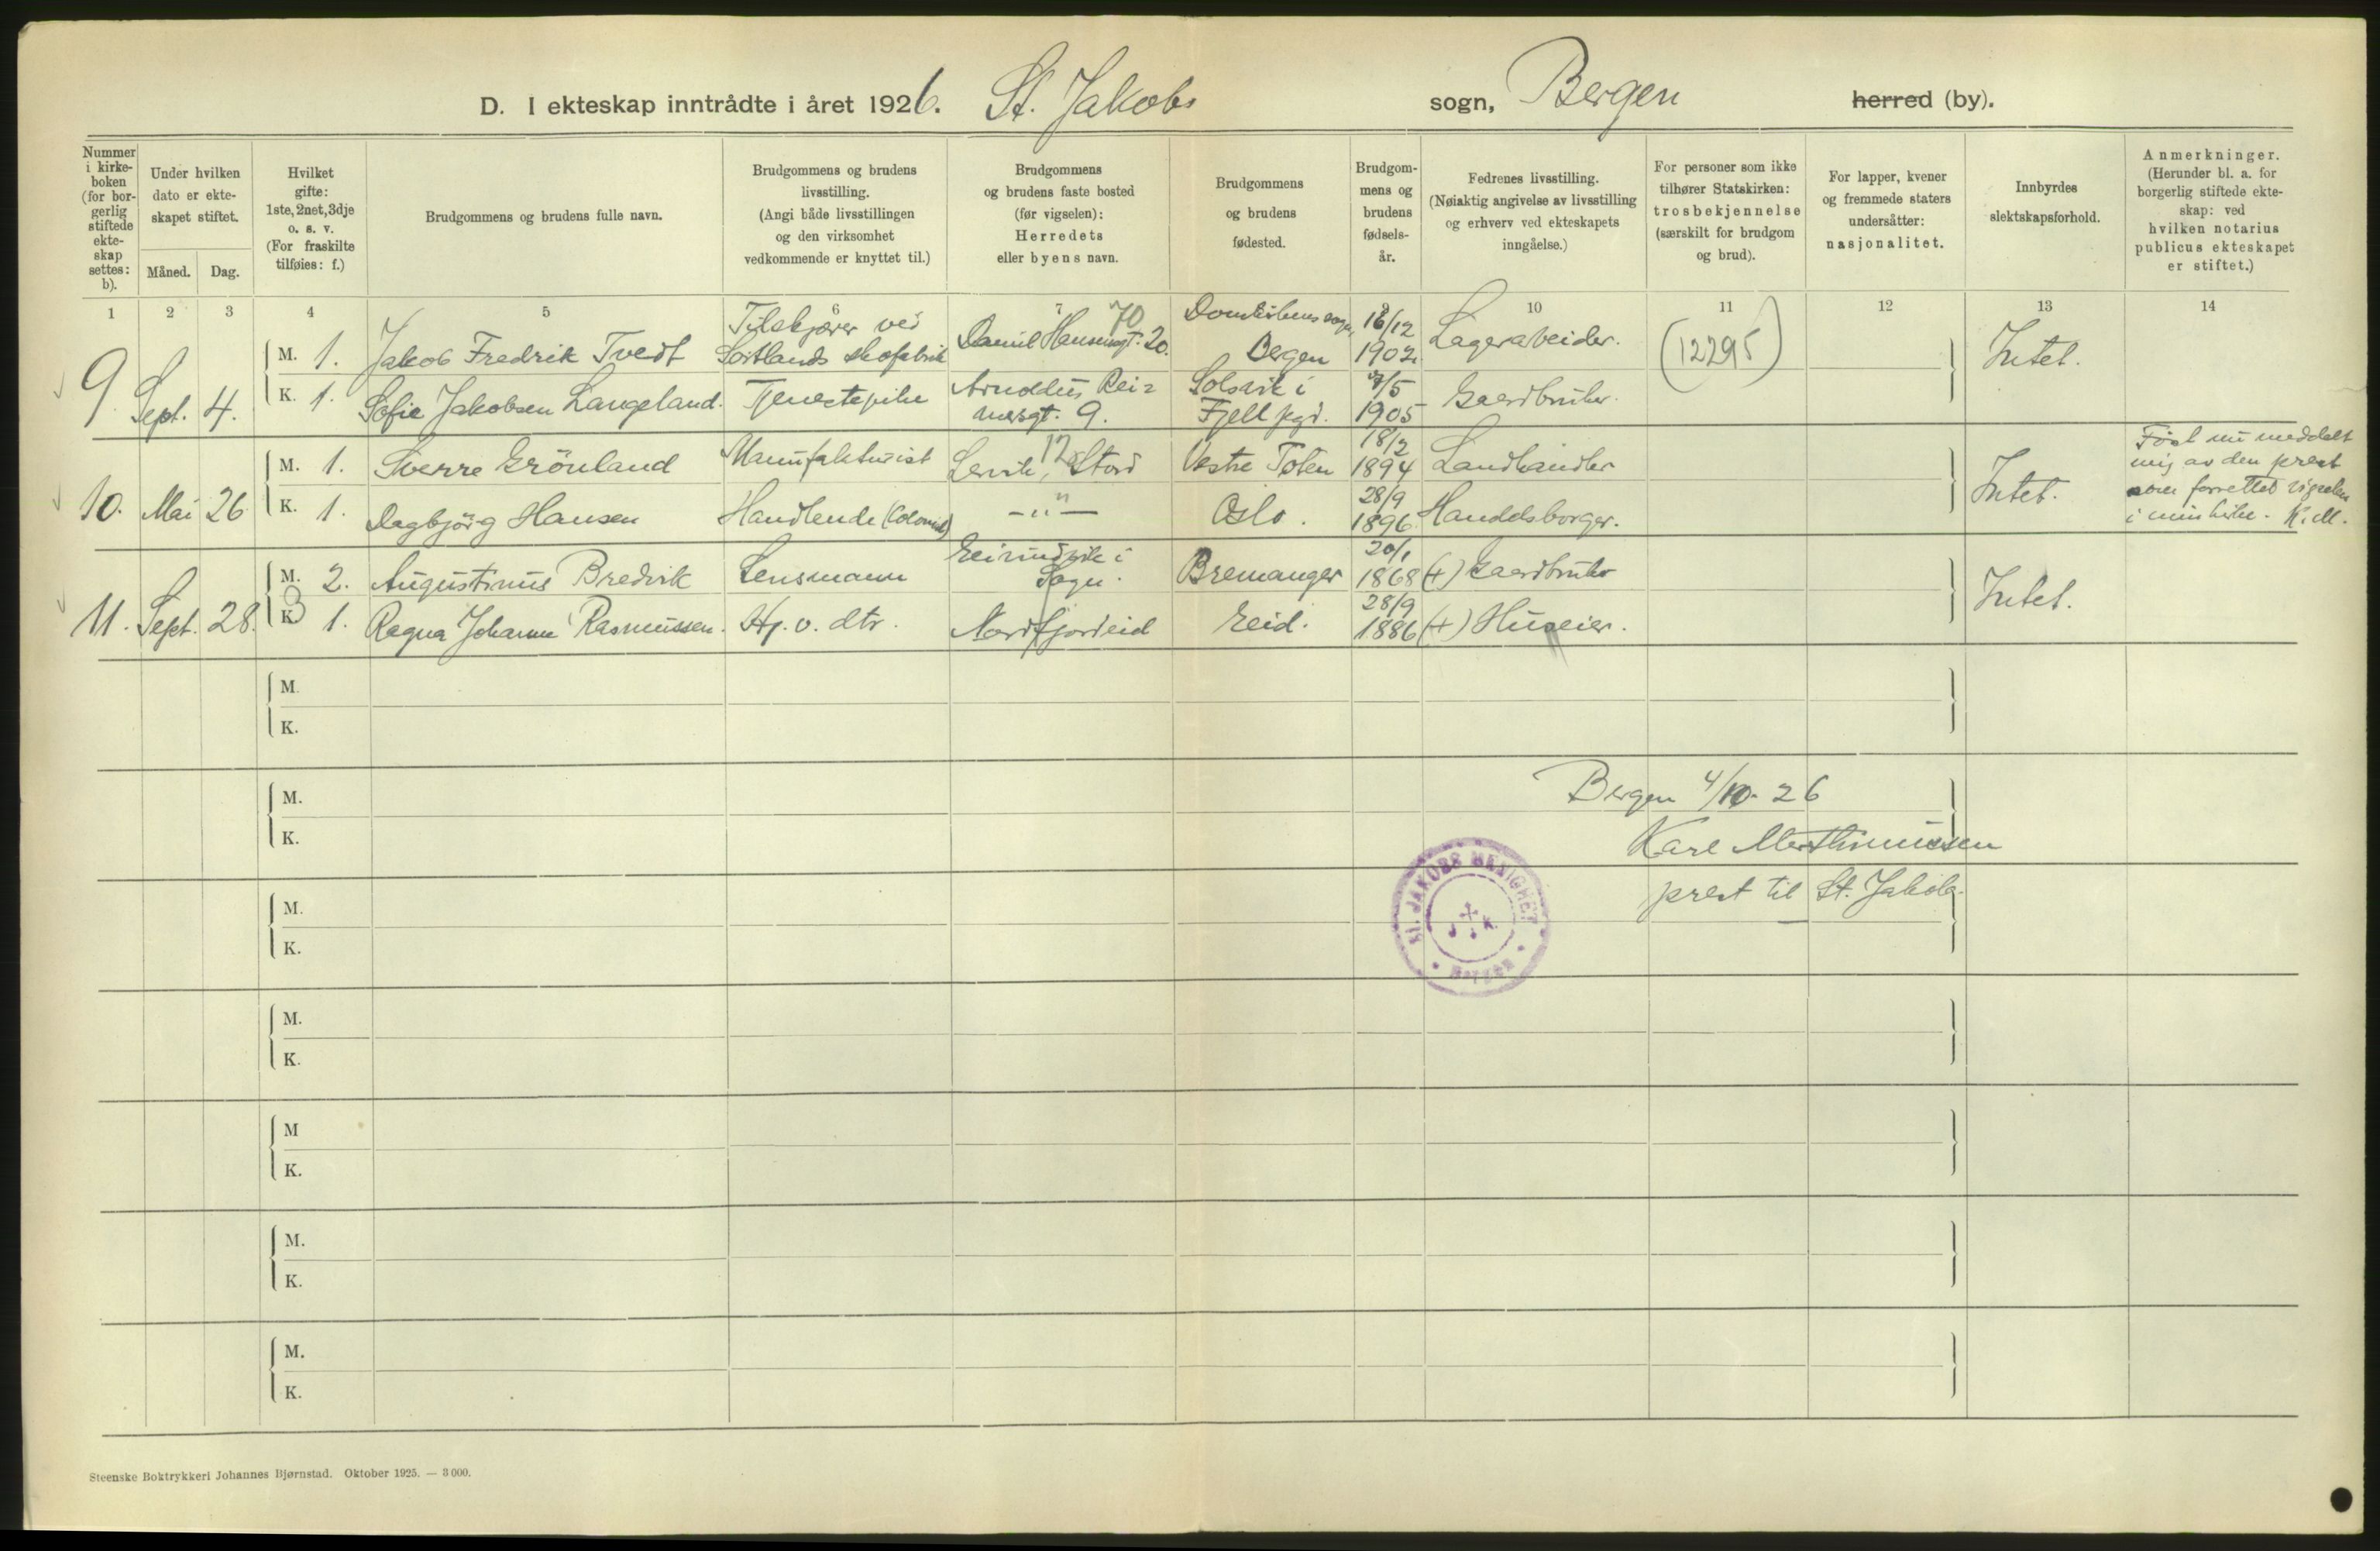 D. I ekteskap inntrådte i året 1926. St. Jakobs sogn, Bergen herred (by).
Nummer i kirke-boken (for bor-gerlig stiftede ekte-skap settes: b).
Under hvilken dato er ekte-skapet stiftet.
Måned. Dag.
Hvilket gifte: 1ste, 2net, 3dje o. s. v. (For fraskilte tilføies: f.)
Brudgommens og brudens fulle navn.
Brudgommens og brudens livsstilling. (Angi både livsstillingen og den virksomhet vedkommende er knyttet til.)
Brudgommens og brudens faste bosted (før vigselen): Herredets eller byens navn.
Brudgommens og brudens fødested.
Brudgom-mens og brudens fødsels-år.
Fedrenes livsstilling. (Nøiaktig angivelse av livsstilling og erhverv ved ekteskapets inngåelse.)
For personer som ikke tilhører Statskirken: trosbekjennelse (særskilt for brudgom og brud).
For lapper, kvener og fremmede staters undersåtter: nasjonalitet.
Innbyrdes slektskapsforhold.
Anmerkninger. (Herunder bl. a. for borgerlig stiftede ekte-skap: ved hvilken notarius publicus ekteskapet er stiftet.)
1 2 3 4 5 6 7 8 9 10 11 12 13 14
9. Sept. 4.
M. 1. Jakob Fredrik Tvedt Tilskjærer ved Sørtlands skofabrik Daniel Hansensgt. 20. 70 Domkirkens sogn, Bergen 16/12 1902. Lagerarbeider. (12295) Intet.
K. 1. Sofie Jakobsen Langeland. Tjenestepike Arnoldus Reimersgt. 9. Solsvik i Fjell pgd. 7/5 1905 Gaardbruker.
10. Mai 26
M. 1. Sverre Grönland Manufakturist Lervik, Stord 12 Vestre Toten 18/2 1894 Landhandler Intet. Först nu meddelt mig av den prest som forrettet vigselen i min kirke. K. M.
K. 1. Dagbjörg Hansen Handlende (Colonial) -"- Oslo. 28/9 1896. Handelsborger.
11. Sept. 28.
M. 2. Augustinus Bredvik Lensmann Eivindvik i Sogn. Bremanger 20/1 1868 (+) Gaardbruker Intet.
K. 1. Ragna Johanne Rasmussen. Hj. v. dtr. Nordfjordeid Eid. 28/9 1886 (+) Huseier.
M.
K.
M.
K.
Bergen 4/10- 26
Karl Marthinussen
prest til St. Jakob.
ST. JAKOBS MENIGHET
BERGEN
M.
K.
M.
K.
M
K.
M.
K.
M.
K.
Steenske Boktrykkeri Johannes Bjørnstad. Oktober 1925. — 3 000.